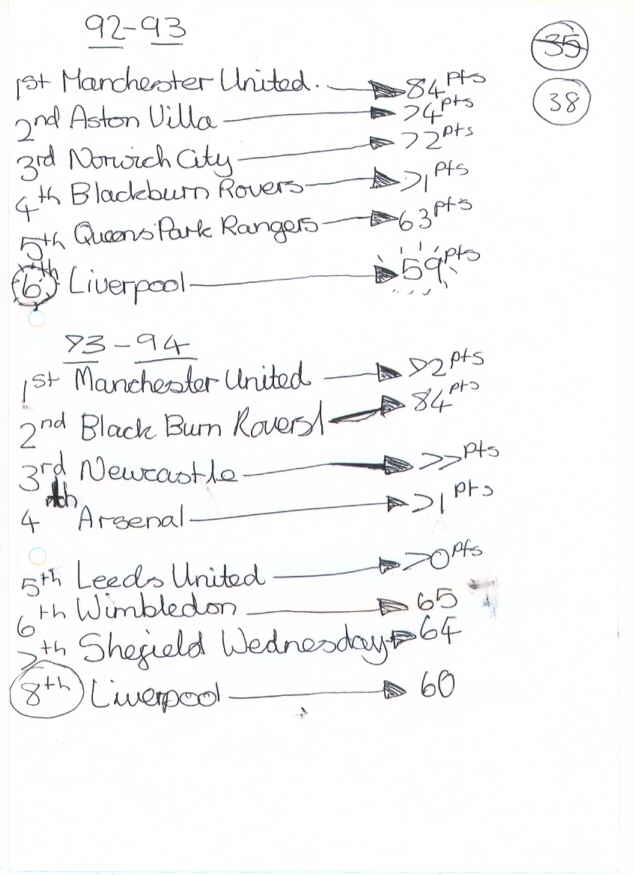 92-93
35
38
1st Manchester United. 84pts
2nd Aston Villa 74pts
3rd Norwich City 72pts
4th Blackburn Rovers 71pts
5th Queens Park Rangers 63pts
6th Liverpool 59pts
93-94
1st Manchester United 92pts
2nd Black Burn Rovers 84pts
3rd Newcastle 77pts
4th Arsenal 71pts
5th Leeds United 70pts
6th Wimbledon 65
7th Shefield Wednesday 64
8th Liverpool 60